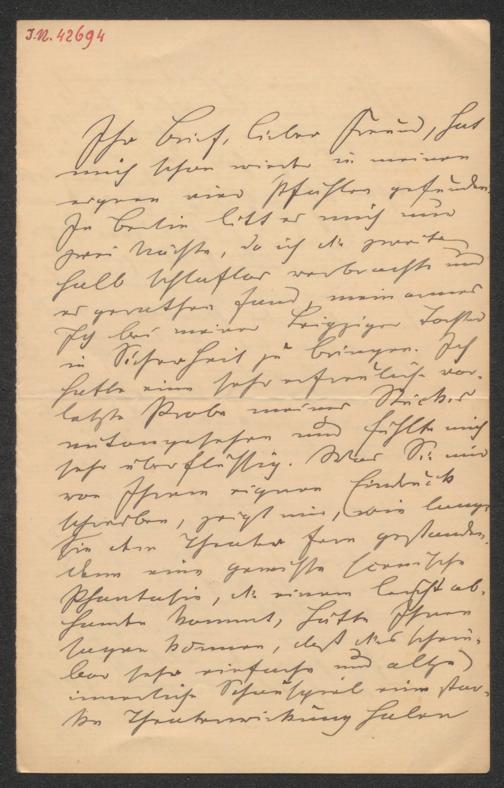 I.N. 42694
Ihr Brief, lieber Freund, hat
mich schon wieder in meinen
eignen vier Pfählen gefunden.
In Berlin litt es mich nur
zwei Nächte, da ich die zweite
halb schlaflos verbrachte und
es gerathen fand, mein armes
Ich bei meiner Leipziger Tochter
in Sicherheit zu bringen. Ich
hatte eine sehr erfreuliche vor-
letzte Probe meines Stückes
mitangesehen und fühlte mich
sehr überflüssig. Was Sie mir
von Ihrem eignen Eindruck
schreiben, zeigt mir, wie lange
Sie dem Theater fern gestanden,
denn eine gewisse scenische
Phantasie, die einem leicht ab-
handen kommt, hätte Ihnen
sagen können, daß das schein-
bar sehr einfache und allzu
innerliche Schauspiel eine star-
ke Theaterwirkung haben